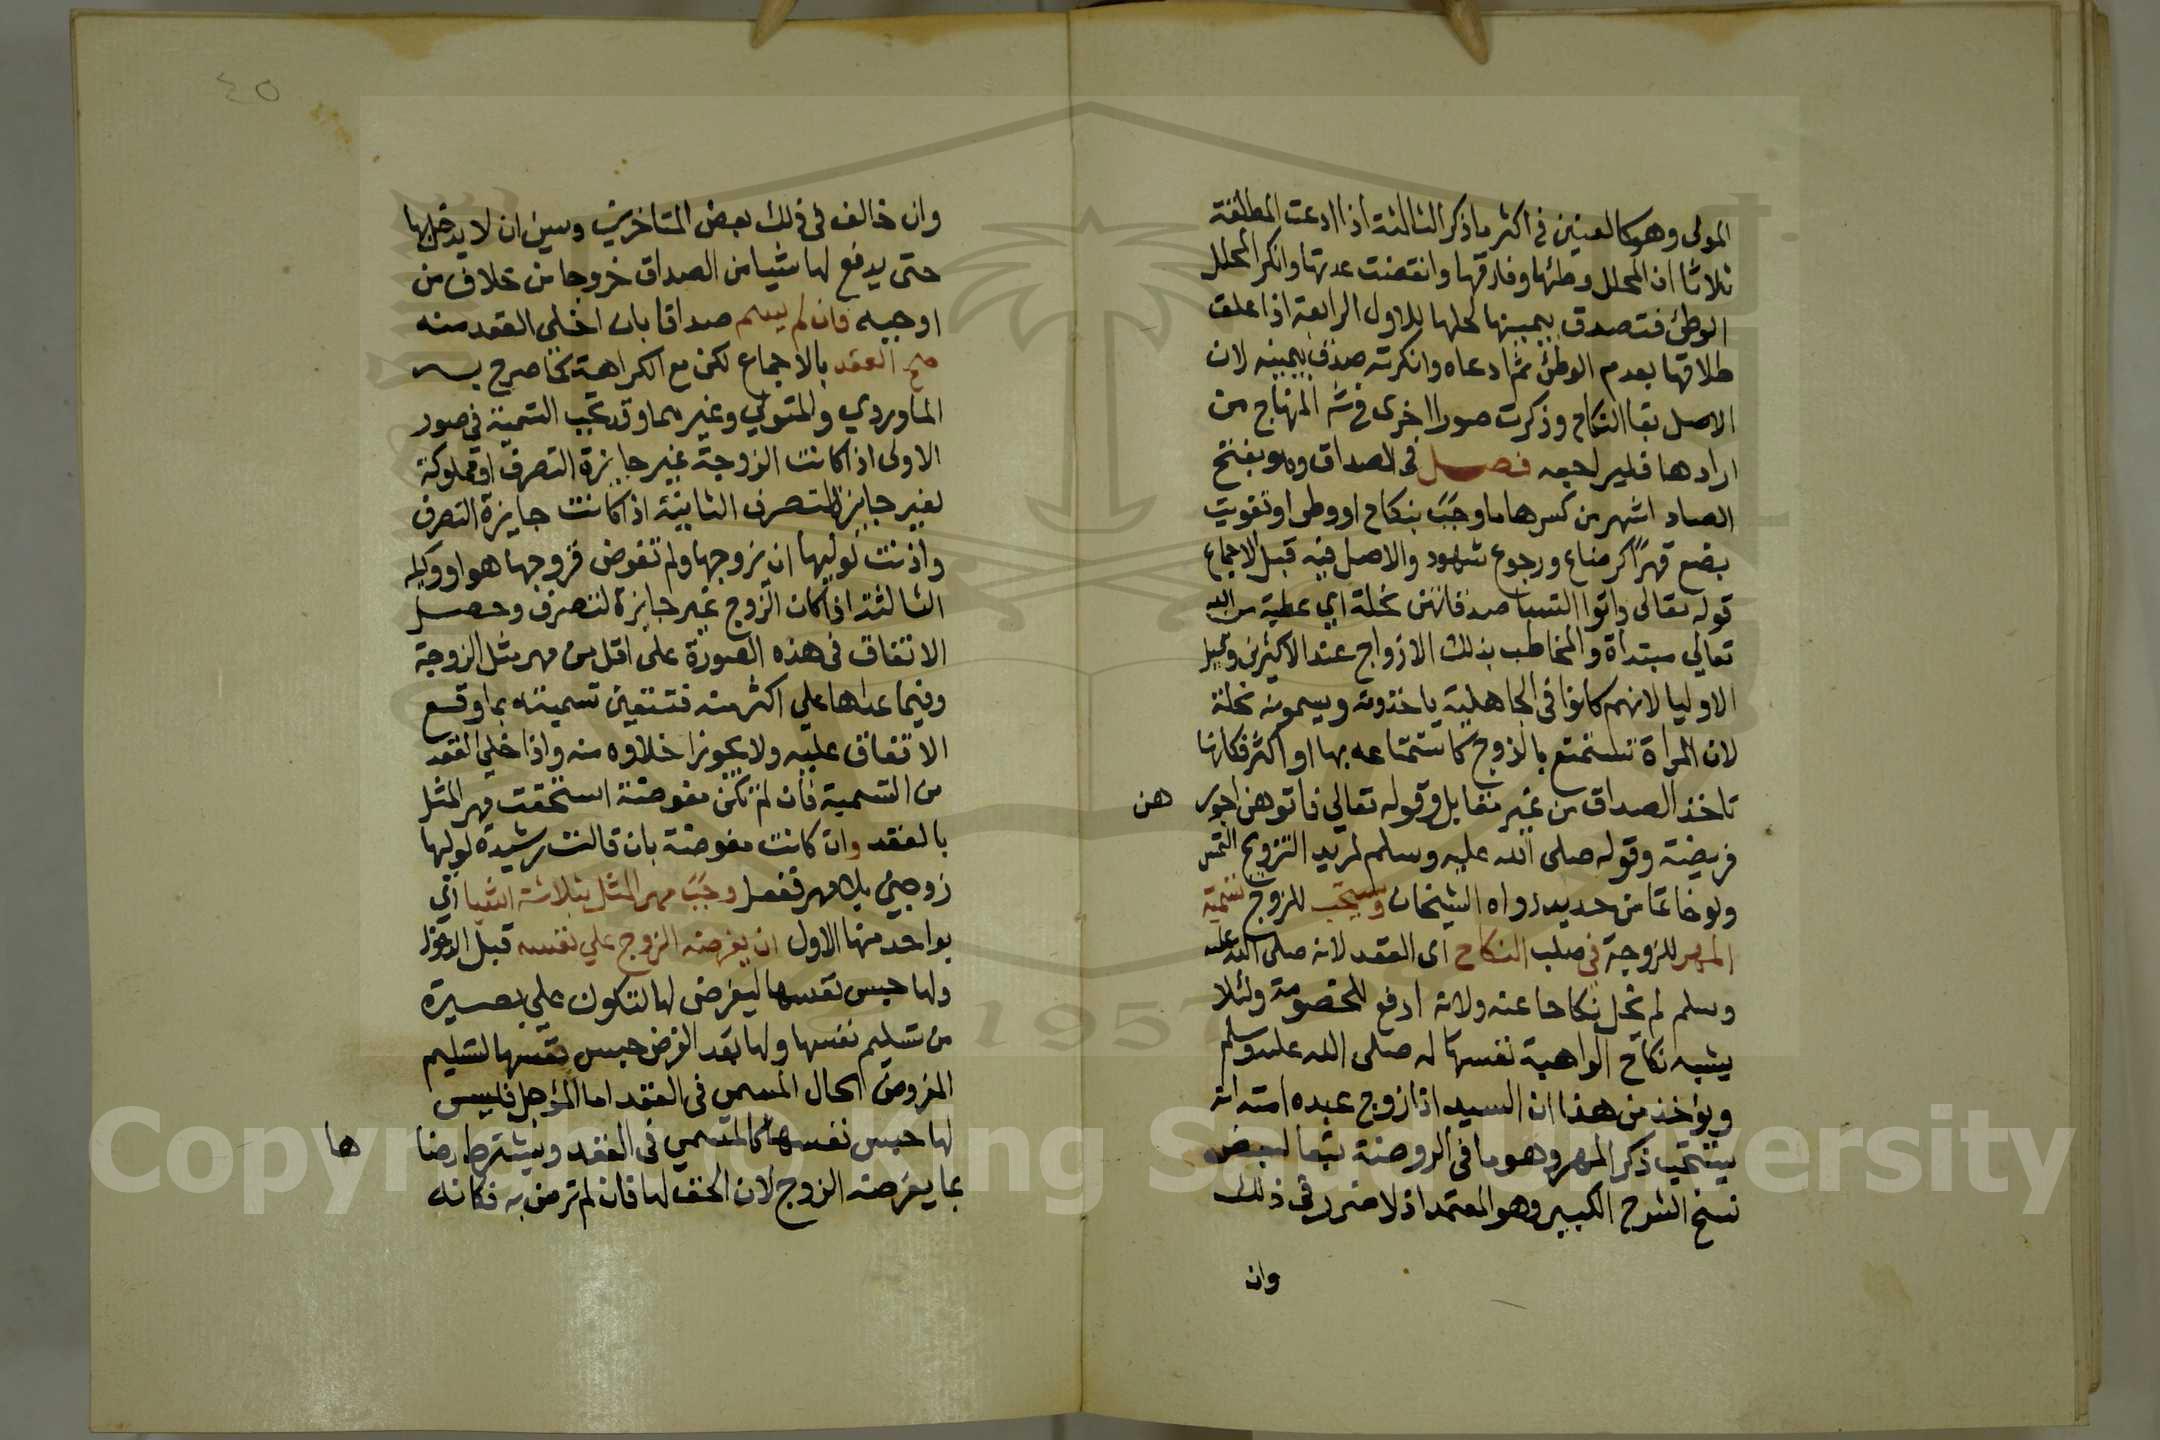 المولى وهو كالعنين فى اكثر ما ذكر الثالثة اذا ادعت المطلقة
ثلاثا ان المحلل وطئها وفارقها وانقضت عدتها وانكر المحلل
الوطئ فتصدق بيمينها لحلها للاول الرابعة اذا علق
طلاقها بعدم الوطئ ثم ادعاه وانكرته صدق بيمينه لان
الاصل بقا النكاح وذكرت صورا اخرى فى شرح المنهاج من
ارادها فليراجعه فصل فى الصداق وهو بفتح
الصاد اشهر من كسرها ما وجب بنكاح او وطى او تفويت
بضع قهرًا كرضاع ورجوع شهود والاصل فيه قبل الاجماع
قوله تعالى واتوا النسا صدقاتهن نحلة اى عطية من الله
تعالي مبتداة والمخاطب بذلك الازواج عند الاكثرين وقيل
الاوليا لانهم كانوا فى الجاهلية ياخذونه ويسمونه نحلة
لان المراة تستمتع بالزوج كاستمتاعه بها او اكثر فكانها
تاخذ الصداق من غير مقابل وقوله تعالي فاتوهن اجور هن
فريضة وقوله صلى الله عليه وسلم لمريد التزويج التمس
ولو خاتما من حديد رواه الشيخان ويستحب للزوج تسمية
المهر للزوجة فى صلب النكاح اى العقد لانه صلى الله عليه
وسلم لم يخل نكاحا عنه ولانه ادفع للخصومة ولئلا
يشبه نكاح الواهبة نفسها له صلى الله عليه وسلم
ويؤخذ من هذا ان السيد اذا زوج عبده امته انه
يستحب ذكر المهر وهو ما فى الروضة تبعا لبعض
نسخ الشرح الكبير وهو المعتمد اذ لا ضرر فى ذلك
وان
٤٥
وان خالف فى ذلك بعض المتاخرين وسن ان لا يدخل بها
حتى يدفع لها شيا من الصداق خروجا من خلاف من
اوجبه فان لم يسم صداقا بان اخلى العقد منه
صح العقد بالاجماع لكن مع الكراهة كما صرح به
الماوردي والمتولي وغيرهما وقد تجب التسمية فى صور
الاولى اذا كانت الزوجة غير جايزة التصرف او مملوكة
لغير جايز التصرف الثانية اذا كانت جايزة التصرف
واذنت لوليها ان يزوجها ولم تفوض فزوجها هو او وكيله
الثالثة اذا كان الزوج غير جايزة لتصرف وحصل
الاتفاق فى هذه الصورة على اقل من مهر مثل الزوجة
وفيما عداها علي اكثر منه فتتعين تسميته بما وقع
الاتفاق عليه ولا يجوز اخلاوه منه واذا خلي العقد
من التسمية فان لم تكن مفوضة استحقت مهر المثل
بالعقد وان كانت مفوضة بان قالت رشيدة لوليها
زوجني بلا مهر ففعل وجب مهر المثل بثلاثة اشيا اى
بواحد منها الاول ان يفرضه الزوج علي نفسه قبل الدخول
ولها حبس نفسها ليفرض لها لتكون علي بصيرة
من تسليم نفسها ولها بعد الفرض حبس نفسها لتسليم
المفروض الحال المسمى فى العقد اما المؤجل فليس
لها حبس نفسها كالمسمي فى العقد ويشترط رضا ها
بما يفرضه الزوج لان الحق لها فان لم ترض به فكانه